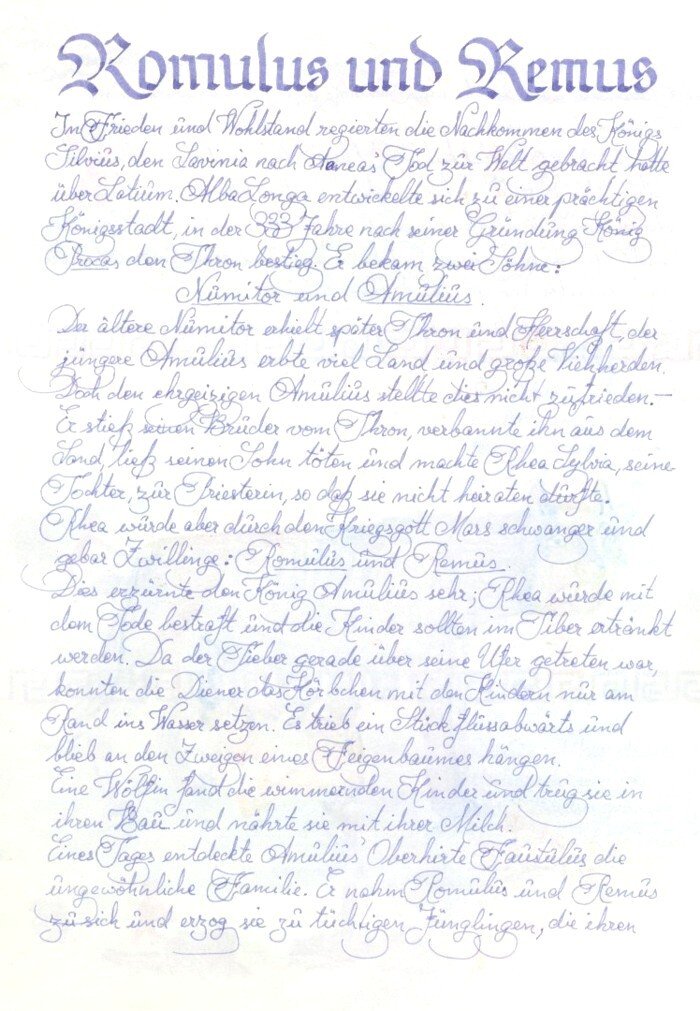 Romulus und Remus
In Frieden und Wohlstand regierten die Nachkommen des Königs
Silvius, den Lavinia nach Aeneas' Tod zur Welt gebracht hatte
über Latium. Alba Longa entwickelte sich zu einer prächtigen
Königsstadt, in der 333 Jahre nach seiner Gründung König
Procas den Thron bestieg. Er bekam zwei Söhne:
Numitor und Amulius.
Der ältere Numitor erhielt später Thron und Herrschaft, der
jüngere Amulius erbte viel Land und große Viehherden.
Doch den ehrgeizigen Amulius stellte dies nicht zufrieden.—
Er stieß seinen Bruder vom Thron, verbannte ihn aus dem
Land, ließ seinen Sohn töten und machte Rhea Sylvia, seine
Tochter, zur Priesterin, so daß sie nicht heiraten durfte.
Rhea wurde aber durch den Kriegsgott Mars schwanger und
gebar Zwillinge: Romulus und Remus.
Dies erzürnte den König Amulius sehr; Rhea wurde mit
dem Tode bestraft und die Kinder sollten im Tiber ertränkt
werden. Da der Tieber gerade über seine Ufer getreten war,
konnten die Diener das Körbchen mit den Kindern nur am
Rand ins Wasser setzen. Es trieb ein Stück flussabwärts und
blieb an den Zweigen eines Feigenbaumes hängen.
Eine Wölfin fand die wimmernden Kinder und trug sie in
ihren Bau und nährte sie mit ihrer Milch.
Eines Tages entdeckte Amulius' Oberhirte Faustulus die
ungewöhnliche Familie. Er nahm Romulus und Remus
zu sich und erzog sie zu tüchtigen Jünglingen, die ihren